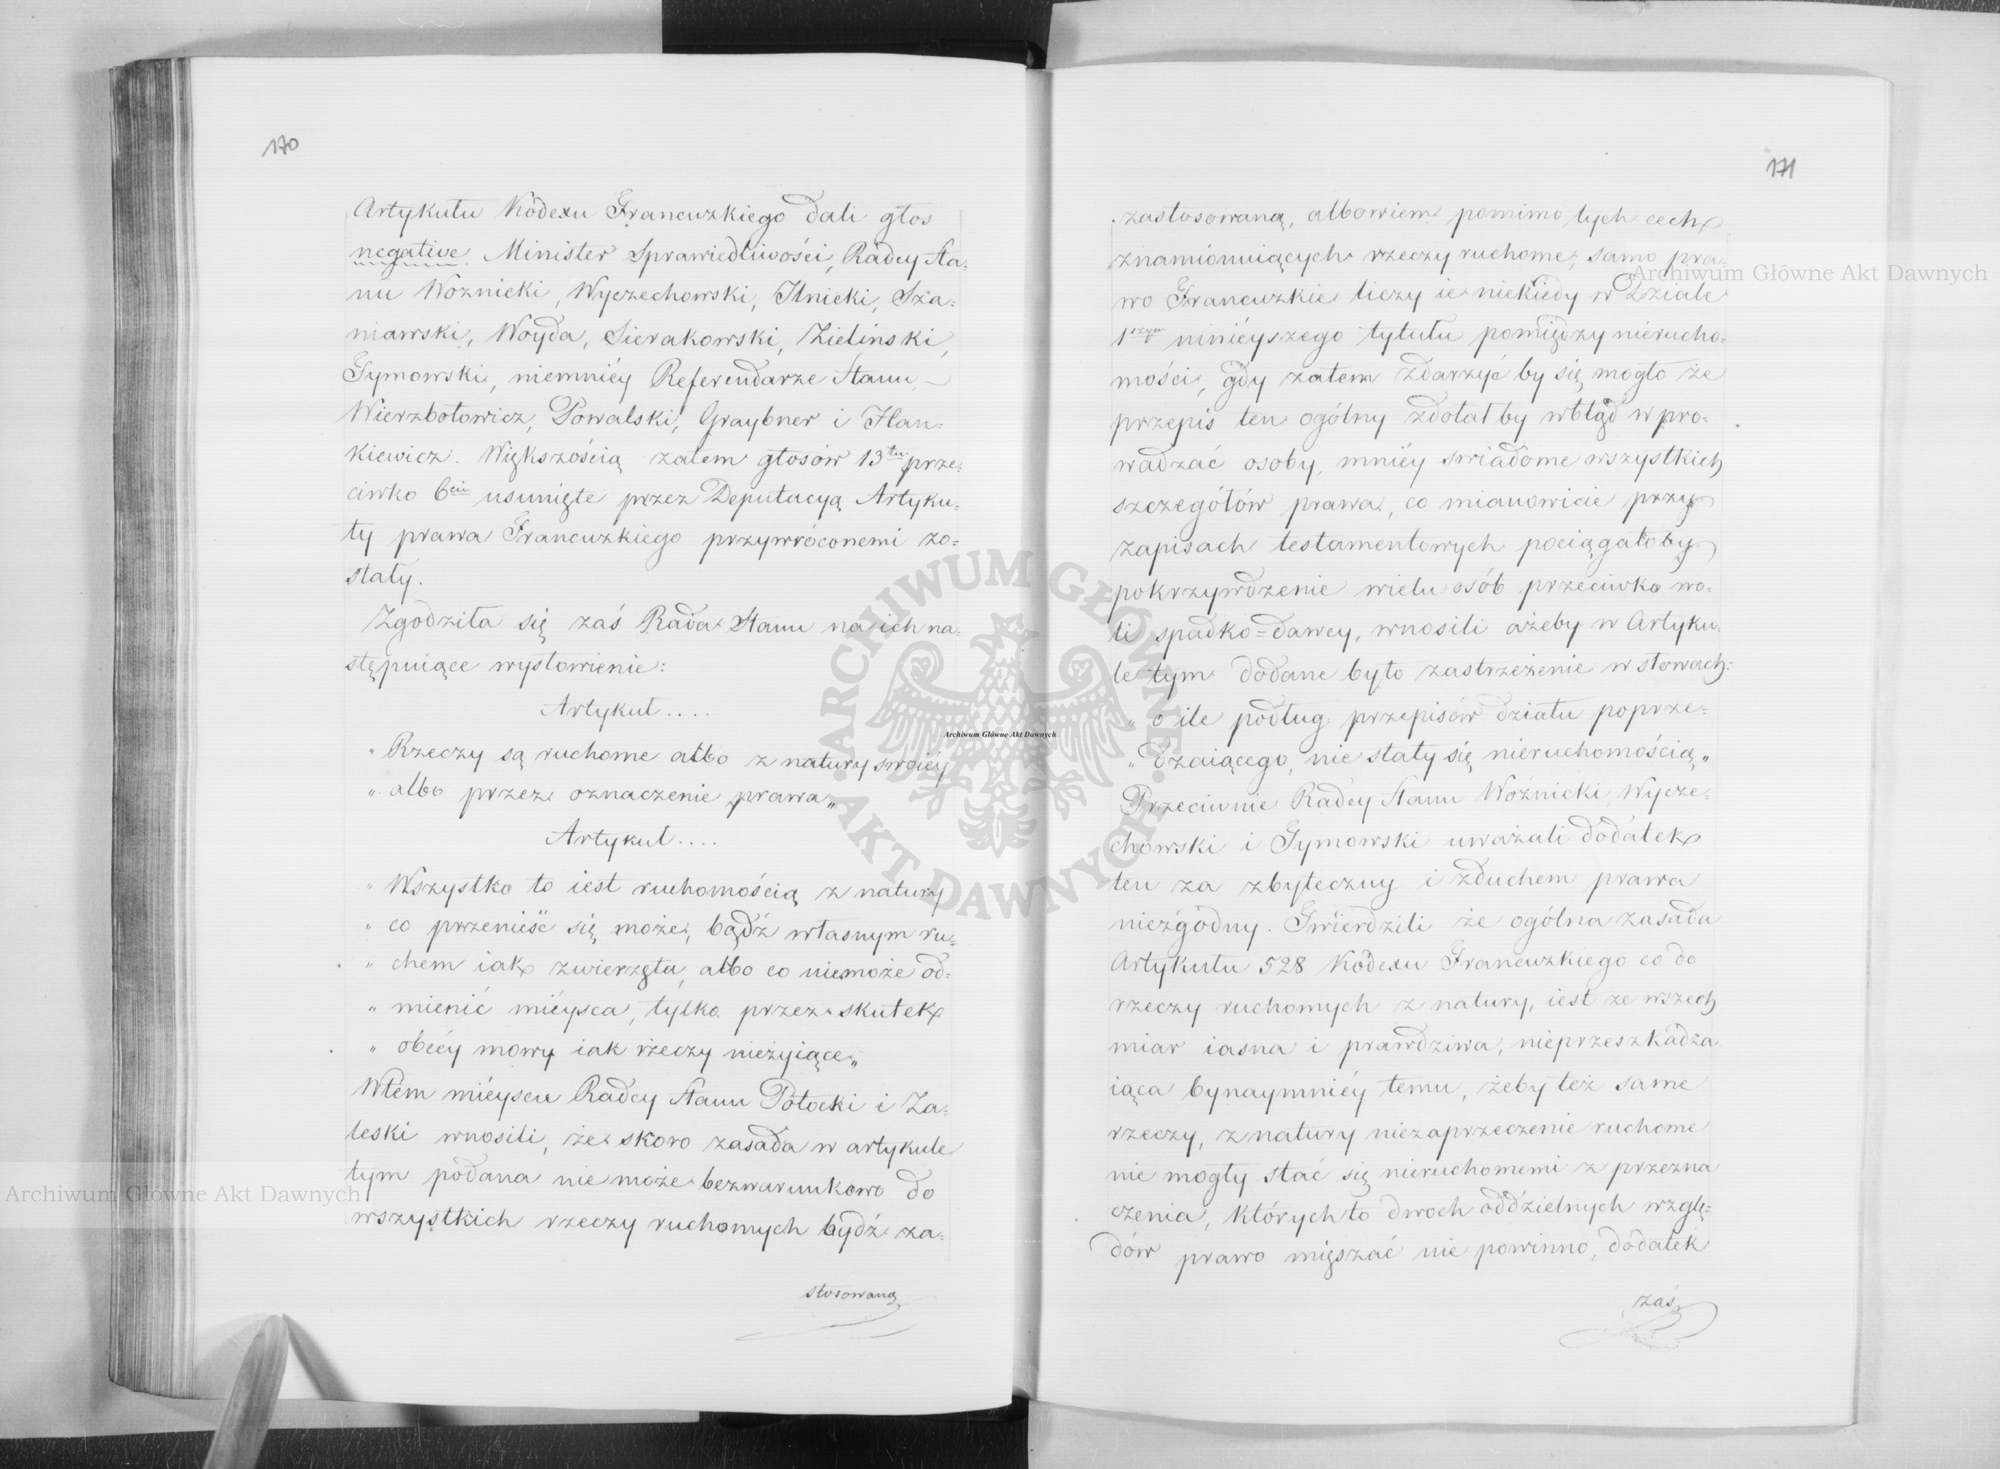 170
Artykułu Kodexu Francuzkiego dali głos
negative. Minister Sprawiedliwości, Radcy Sta-
nu Woźnicki, Wyczechowski, Ilnicki, Sza-
niawski, Woyda, Sierakowski, Zieliński,
Tymowski, niemniéy Referendarze Stanu –
Wierzbołowicz, Powalski, Graybner i Han-
kiewicz. Większością zatem głosów 13tu prze-
ciwko 6ciu usunięte przez Deputacyą Artyku-
ły prawa Francuzkiego przywróconemi zo-
stały.
Zgodziła się zaś Rada Stanu na ich na-
stępuiące wysłowienie:
Artykuł....
" Rzeczy są ruchome albo z natury swoiéy
" albo przez oznaczenie prawa„
Artykuł....
" Wszystko to iest ruchomością z natury
" co przenieść się może, bądź własnym ru-
" chem iak zwierzęta, albo co niemoże od-
" mienić miéysca, tylko przez skutek
" obcéy mowy iak rzeczy nieżyiące„
Wtem miéyscu Radcy Stanu Potocki i Za-
leski wnosili, że skoro zasada w artykule
tym podana nie może bezwarunkowo do
wszystkich rzeczy ruchomych bydź za-
stosowaną
171
zastosowaną, albowiem pomimo tych cech
znamionuiących rzeczy ruchome, samo pra-
wo Francuzkie liczy ie niekiedy w Dziale
1szym ninieyszego tytułu pomiędzy nierucho-
mości, gdy zatem zdarzyć by się mogło że
przepis ten ogólny zdołał by wbłąd wpro-
wadzać osoby, mniéy świadome wszystkich
szczegółów prawa, co mianowicie przy
zapisach testamentowych pociągałoby
pokrzywdzenie wielu osób przeciwko wo-
li spadko=dawcy, wnosili ażeby w Artyku-
le tym dodane było zastrzeżenie w słowach:
" o ile podług przepisów działu poprze-
" dzaiącego, nie stały się nieruchomością„
Przeciwnie Radcy Stanu Woźnicki, Wycze-
chowski i Tymowski uważali dodatek
ten za zbyteczny i zduchem prawa
niezgodny. Twierdzili że ogólna zasada
Artykułu 528 Kodexu Francuzkiego co do
rzeczy ruchomych z natury, iest ze wszech
miar iasna i prawdziwa, nieprzeszkadza
iąca bynaymniéy temu, żeby też same
rzeczy, z natury niezaprzeczenie ruchome
nie mogły stać się nieruchomemi z przezna
czenia, których to dwoch oddzielnych wzglę-
dów prawo mięszać nie powinno, dodatek
zaś
Archiwum Główne Akt Dawnych
Archiwum Główne Akt Dawnych
Archiwum Główne Akt Dawnych
ARCHIWUM GŁÓWNE AKT DAWNYCH